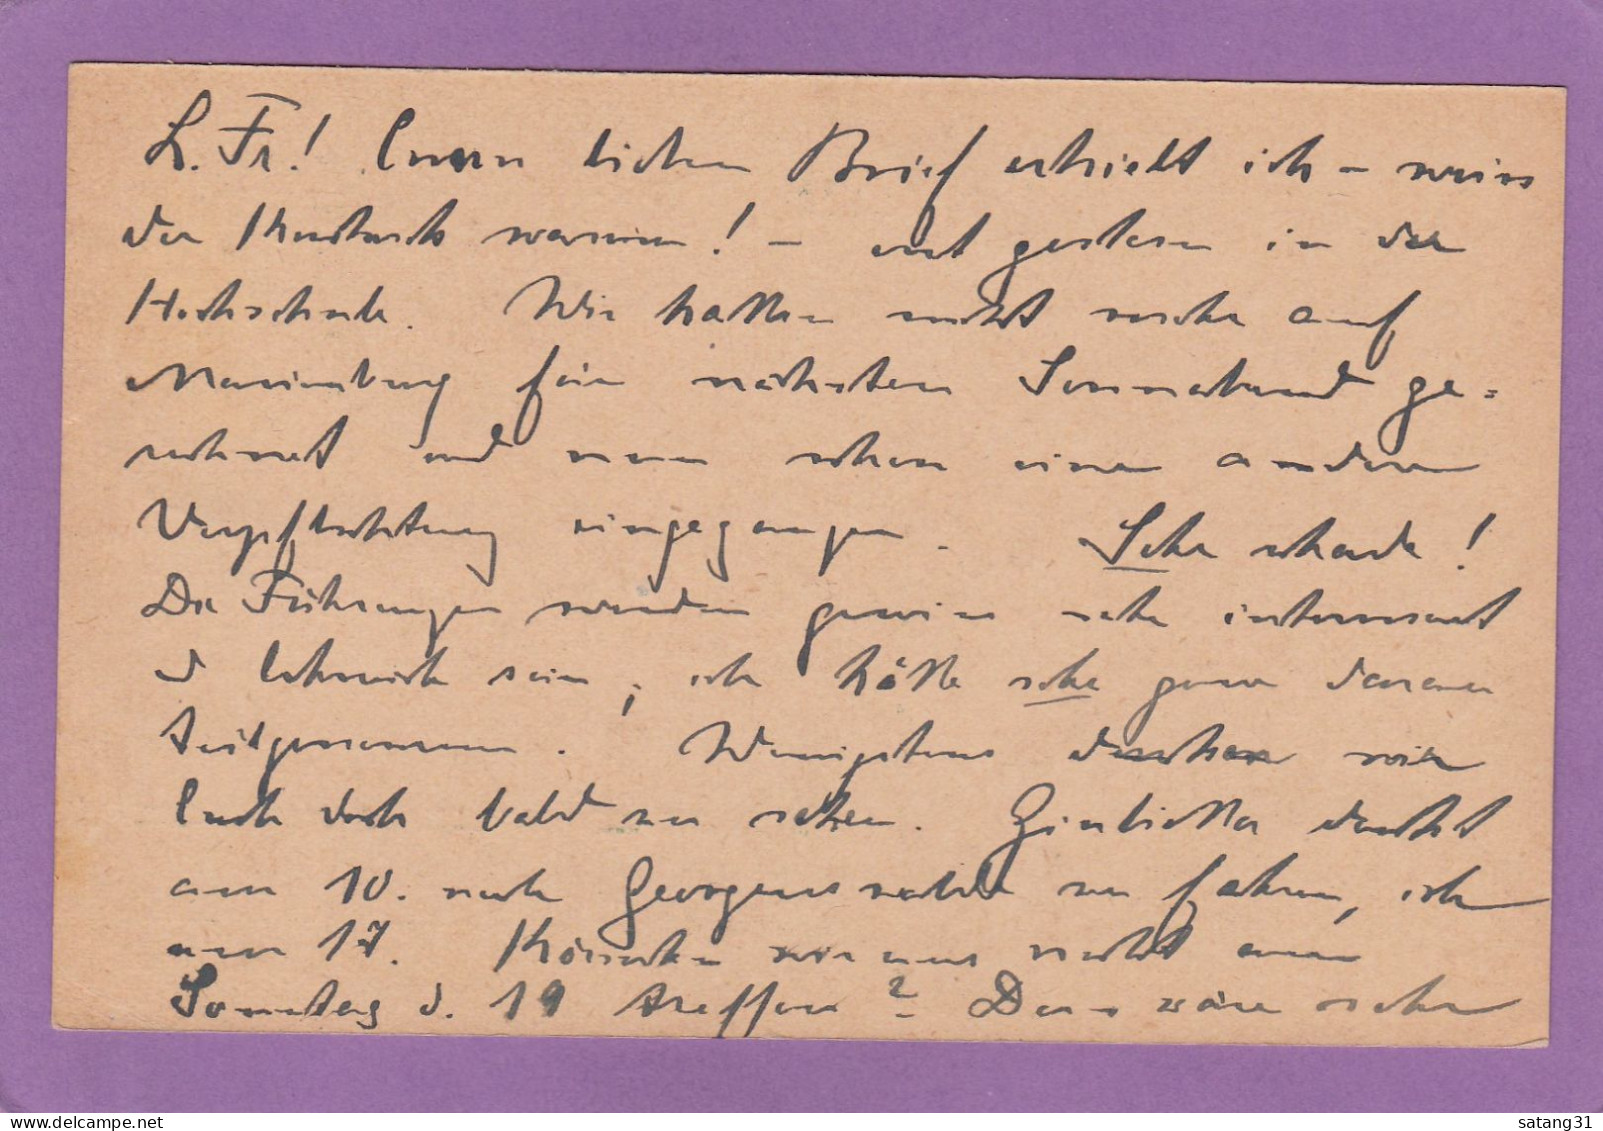 L. Fr! Euren lieben Brief erhielt ich – weiss
der Kuckuck warum! – erst gestern in der
Hochschule. Wir hatten nicht mehr auf
Marienburg für nächsten Sonnabend ge=
rechnet und nun schon einen anderen
Verpflichtung eingegangen. Sehr schade!
Die Führungen werden gewiss sehr interessant
u lehrreich sein, ich hätte sehr gern daran
teilgenommen. Wenigstens wir
Euch doch bald zu sehen. denkt
am 10. nach Georgenswalde zu fahren, ich
am 17. Könnten wir uns nicht am
Sonntag d. 19 treffen? Das wäre sehr
satang31